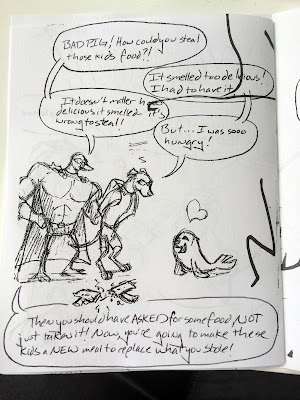 BAD PIG! How could you steal
those kids food?!
It smelled too delicious!
I had to have it
It doesn't matter how
delicious it smelled it's
wrong to steal!
But... I was sooo
hungry!
Then you should have ASKED for some food, NOT
just taken it! Now, you're going to make these
kids a NEW meal to replace what you stole!